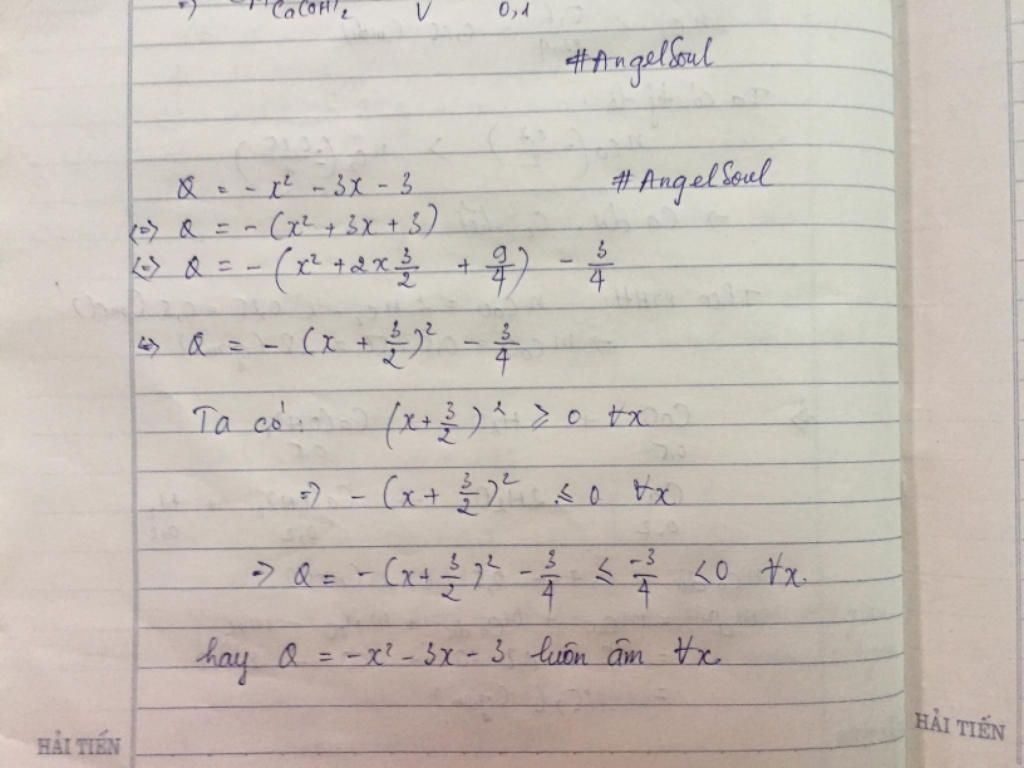 => CaCOH)2 V 0,1
#AngelSoul
Q = - x² - 3x - 3 #AngelSoul
<=> Q = - (x² + 3x + 3)
<=> Q = - (x² + 2x 3/2 + 9/4) - 3/4
<=> Q = - (x + 3/2)² - 3/4
Ta có (x + 3/2)² ≥ 0 ∀x
=> - (x + 3/2)² ≤ 0 ∀x
=> Q = - (x + 3/2)² - 3/4 ≤ -3/4 < 0 ∀x.
hay Q = -x² - 3x - 3 luôn âm ∀x
HẢI TIẾN
HẢI TIẾN